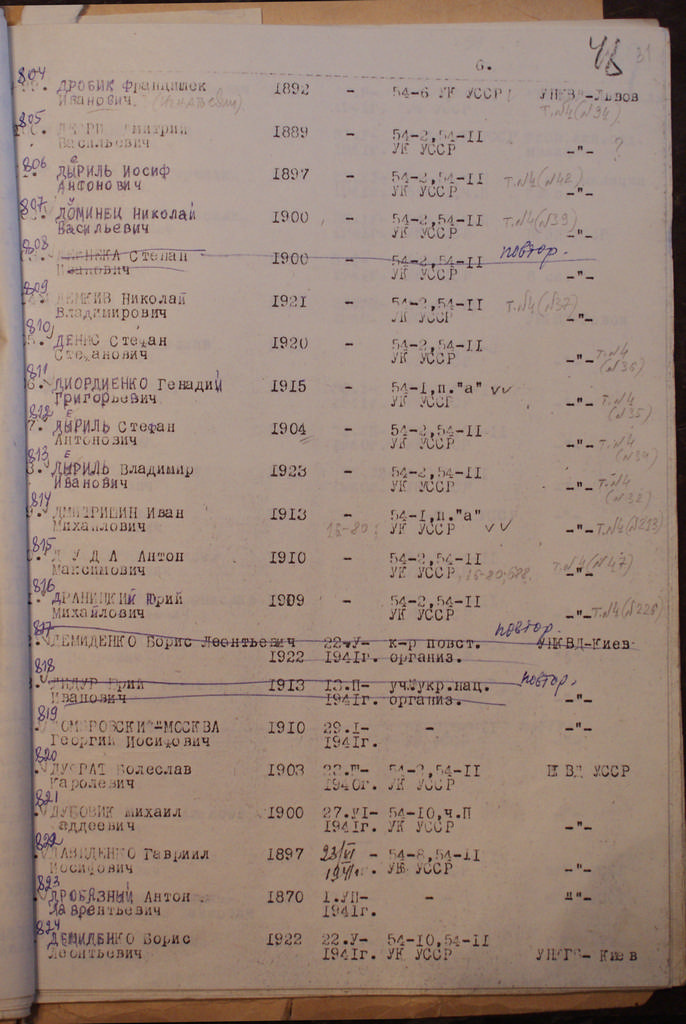 6.
48
31
804
ДРОБИК Францишек 1892 - 54-6 УК УССР УНКВД-Львов
Иванович. (Игнатьевич) т.№4(№34)
805
Дмитрий 1889 - 54-2,54-II ?
Васильевич УК УССР -"-
806
ДЫРИЛЬ Иосиф 1897 - 54-2,54-II т.№4(№42)
Антонович УК УССР -"-
807
ДОМИНЕЦ Николай 1900 - 54-2,54-II т.№4(№39)
Васильевич УК УССР -"-
808
Степан 1900 - 54-2,54-II повтор.
Иванович УК УССР -"-
809
ДЕМКИВ Николай 1921 - 54-2,54-II т.№4(№37)
Владимирович УК УССР -"-
810
5. ДЕНИС Стефан 1920 - 54-2,54-II
Стефанович УК УССР -"- т.№4 (№36)
811
6. ДИОРДИЕНКО Генадий 1915 - 54-I,п."а" vv
Григорьевич УК УССР -"- т.№4 (№35)
812
7. ДЫРИЛЬ Стефан 1904 - 54-2,54-II
Антонович УК УССР -"- т.№4 (№34)
813
8. ДЫРИЛЬ Владимир 1923 - 54-2,54-II
Иванович УК УССР -"- т.№4 (№32)
814
ДМИТРИШИН Иван 1913 - 54-I,п."а"
Михайлович 18-80; УК УССР vv -"- т.№4(№213)
815
Д У Д А Антон 1910 - 54-2,54-II т.№4(№47)
Максимович УК УССР, -"-
816
ДРАНИЦКИЙ Юрий 1909 - 54-2,54-II
Михайлович УК УССР -"- т.№4(№228)
817 повтор.
ДЕМИДЕНКО Борис Леонтьевич 22.У- к-р повст. УНКВД-Киев
1922 1941г. организ.
818
Юрий 1913 13.П- уч.укр.нац. повтор.
Иванович 1941г. организ. -"-
819
ДОМБРОВСКИЙ-МОССКВА 1910 29.I- - -"-
Георгий Иосифович 1941г.
820
Болеслав 1903 54-2,54-II НКВД УССР
Каролевич 1940г. УК УССР
821
ДУБОВИК Михаил 1900 27.УI- 54-10,ч.П
Фаддеевич 1941г. УК УССР -"-
822
ДАВИДЕНКО Гавриил 1897 23/VI - 54-8,54-II
Иосифович 1941г. УК УССР -"-
823
ДРОБЯЗНЫЙ Антон 1870 I.УП- - -"-
Лаврентьевич 1941г.
824
ДЕМИДЕНКО Борис 1922 22.У- 54-10,54-II
Леонтьевич 1941г. УК УССР УНКГБ- Киев